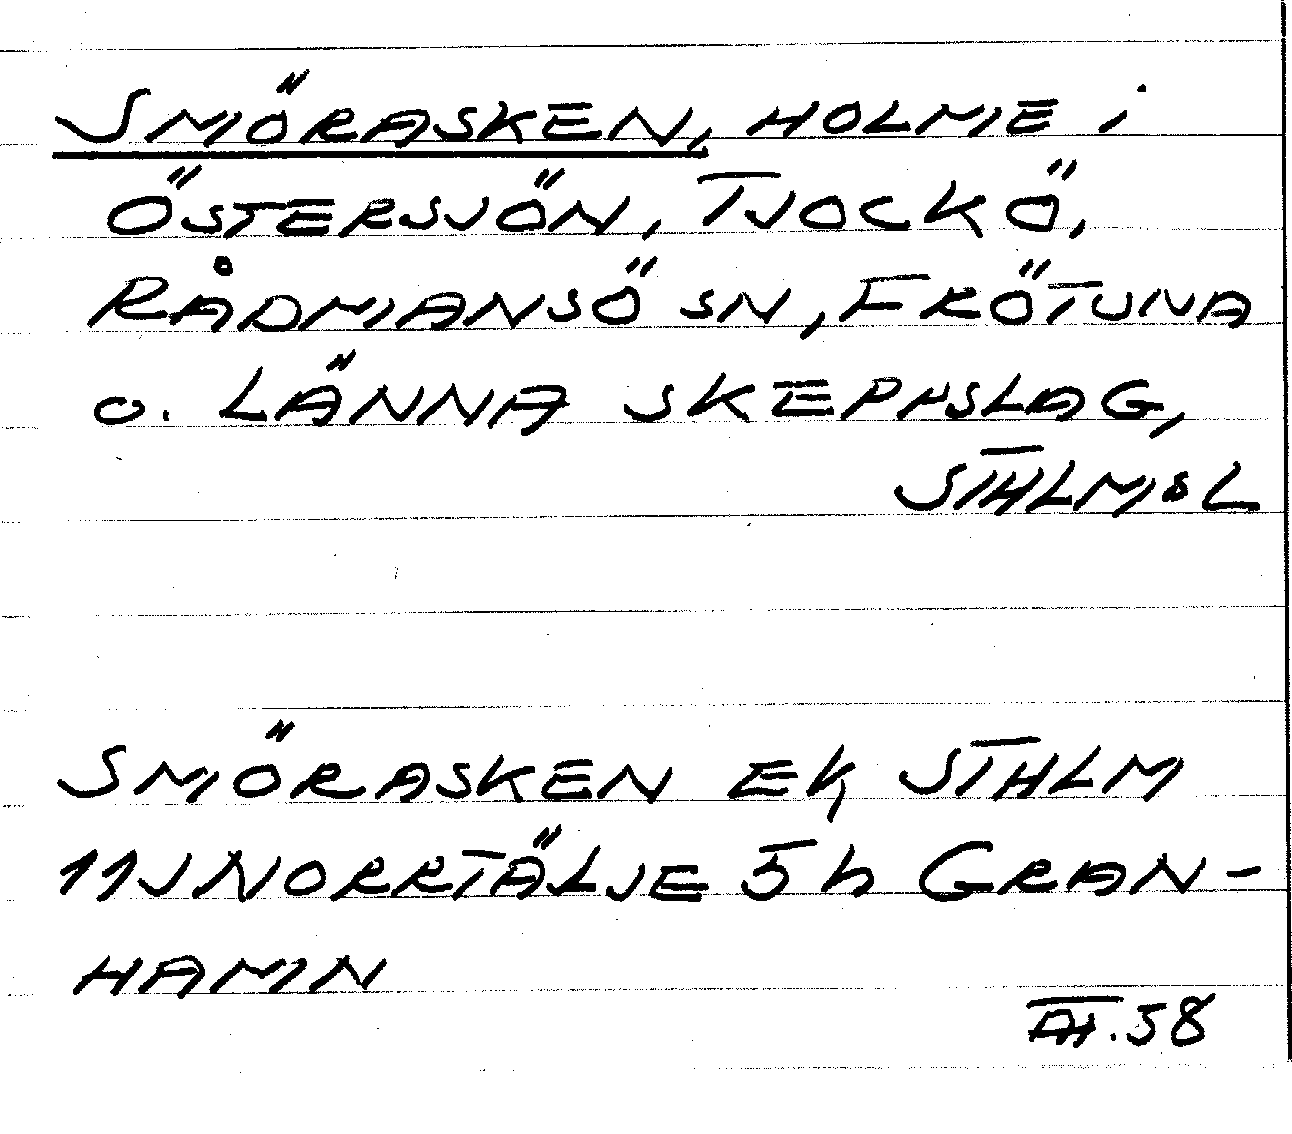 SMÖRASKEN, HOLME i
ÖSTERSJÖN, TJOCKÖ,
RÅDMANSÖ SN, FRÖTUNA
o. LÄNNA SKEPPSLAG,
STHLMS L
SMÖRASKEN EK STHLM
11J NORRTÄLJE 5h GRAN-
HAMN
AH.58